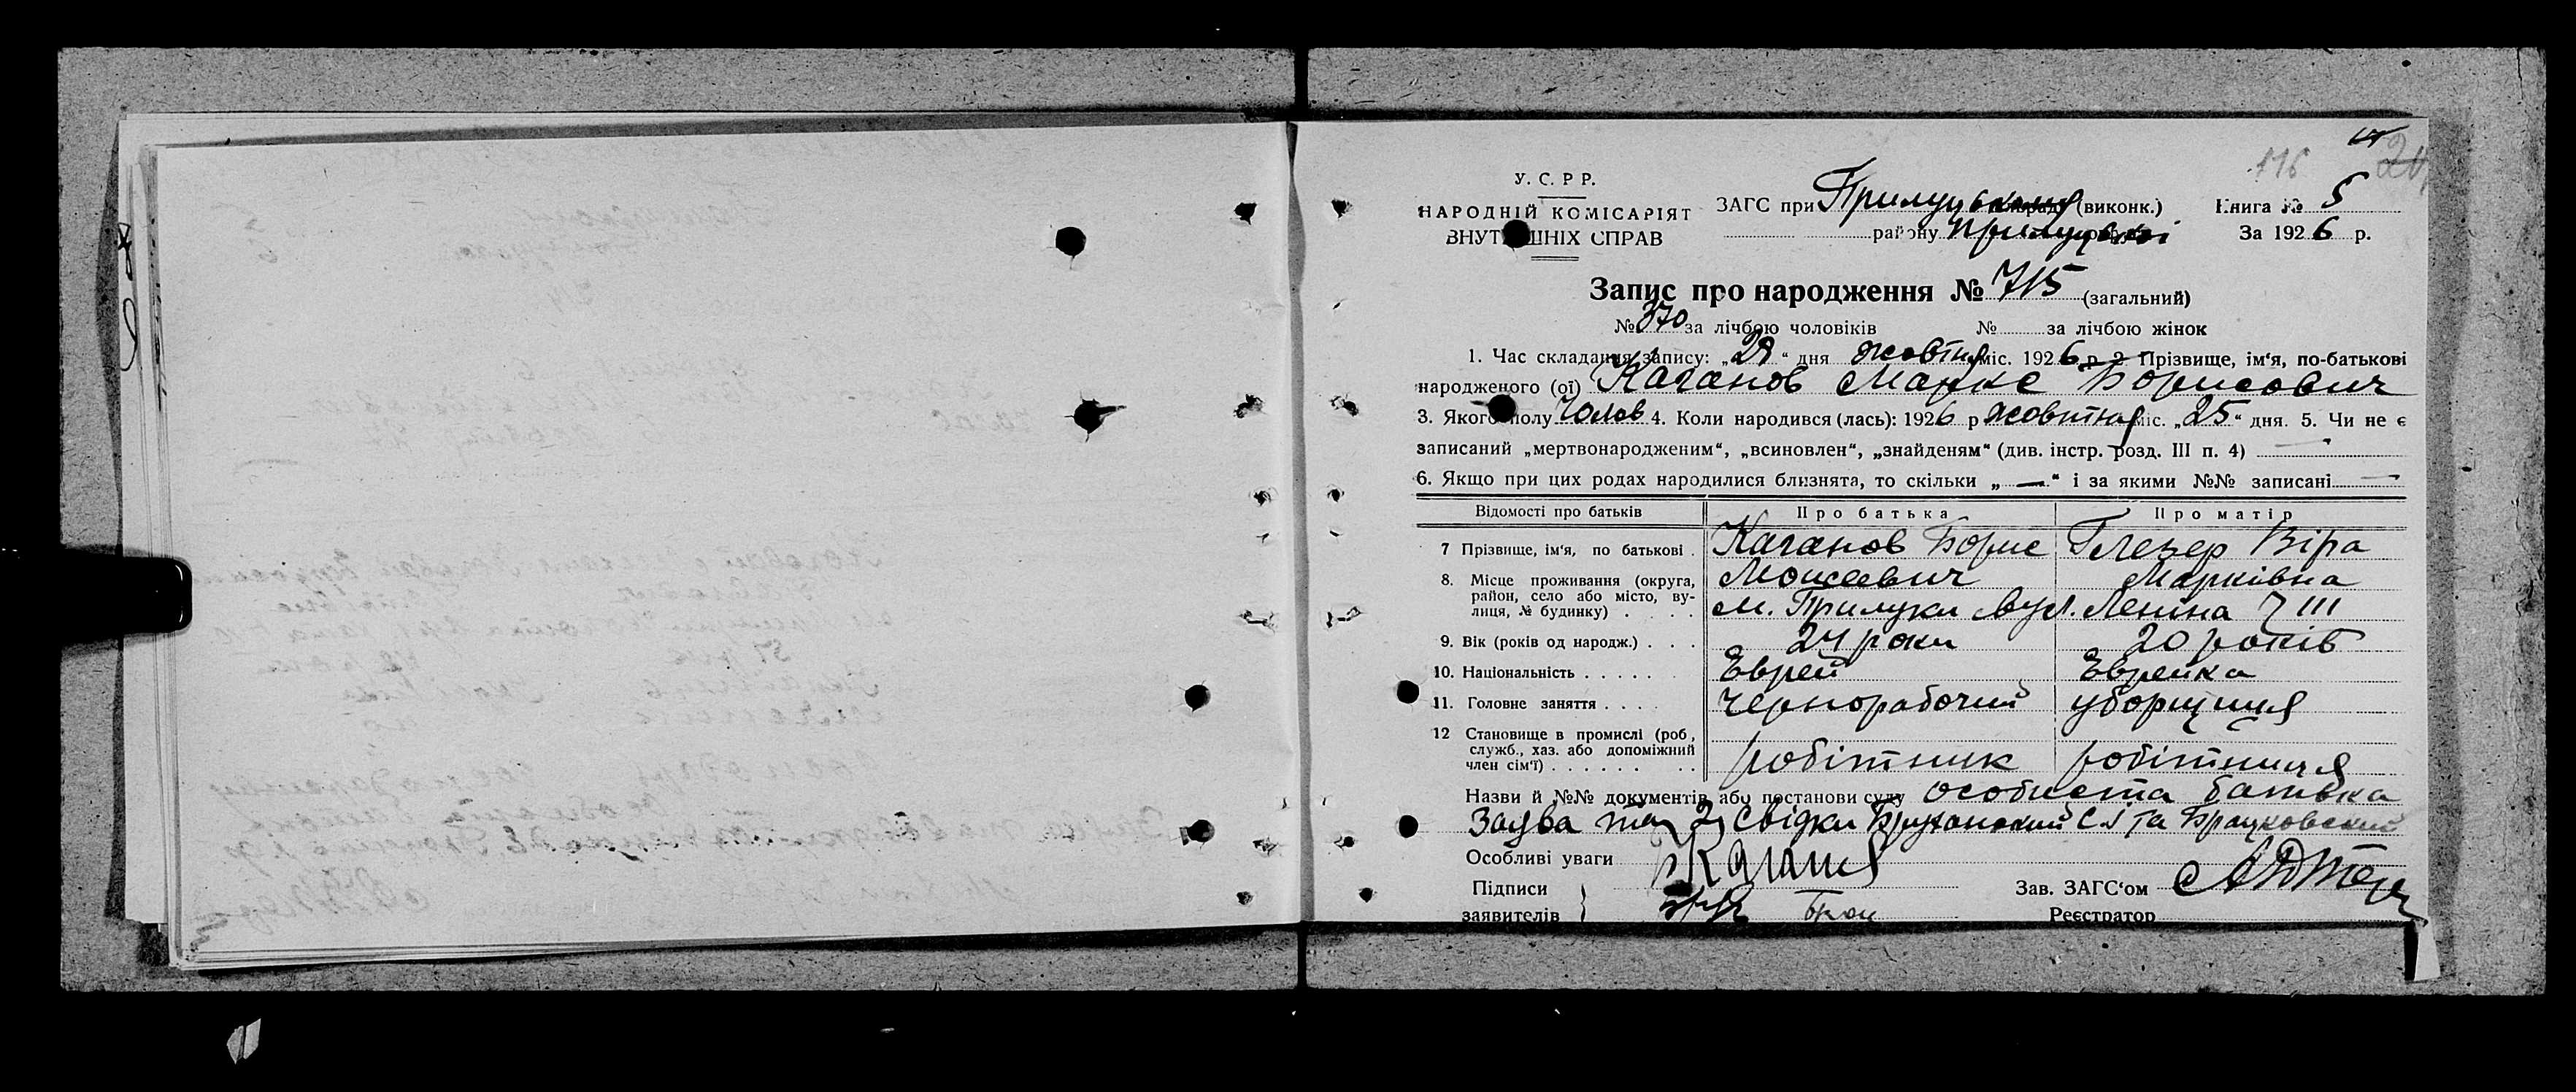 116
У. С. Р Р.
НАРОДНІЙ КОМІСАРІЯТ
ВНУТРІШНІХ СПРАВ
ЗАГС при Прилуцькому раді (виконк.)
району Прилуцької
Книга № 5
За 1926 р.
Запис про народження № 715 (загальний)
№ 370 за лічбою чоловіків № за лічбою жінок
1. Час складання запису: „29“ дня жовтня міс. 1926 р. 2. Прізвище, ім‘я, по-батькові
народженого (ої) Каганов Маркс Борисович
3. Якого полу Чолов 4. Коли народився (лась): 1926 р жовтня міс. „25“ дня. 5. Чи не є
записаний „мертвонародженим“, „всиновлен“, „знайденям“ (див. інстр. розд. III п. 4) —
6. Якщо при цих родах народилися близнята, то скільки „—“ і за якими №№ записані —
Відомості про батьків Про батька Про матір
7 Прізвище, ім‘я, по батькові . Каганов Борис Глезер Віра
Мойсеевич Марківна
8. Місце проживання (округа, район, село або місто, вулиця, № будинку) . . . . м. Прилуки вул. Леніна 7 111
9. Вік (років од народж.) . . . 24 роки 20 років
10. Національність . . . . . Еврей Еврейка
11. Головне заняття . . . . Чернорабочий уборщиця
12 Становище в промислі (роб, служб., хаз. або допоміжний член сім‘ї) . . . . . . . . робітник робітниця
Назви й №№ документів або постанови суду особиста батька
Заява та 2 свідки та
Особливі уваги
Підписи
заявителів
Зав. ЗАГС‘ом
Реєстратор